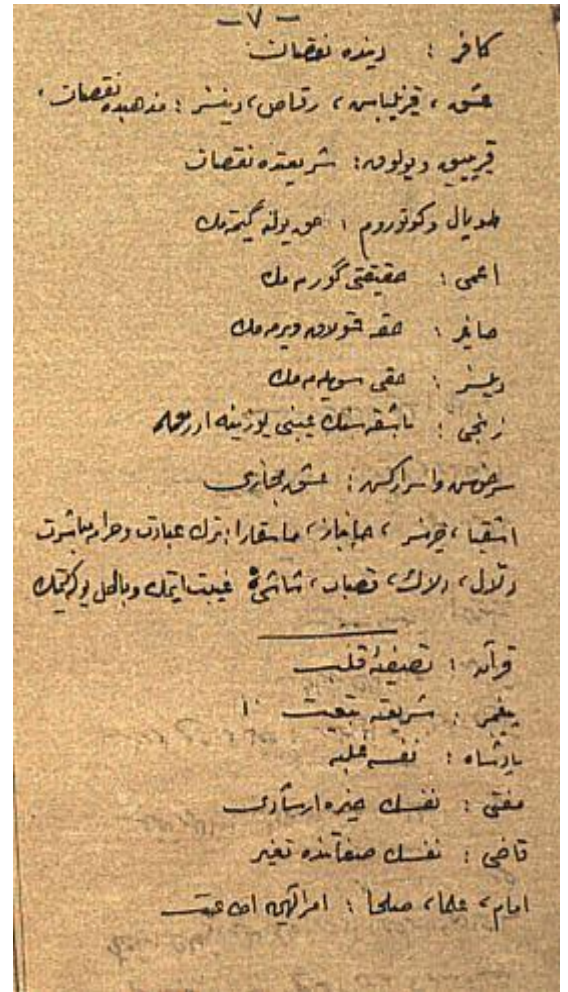 - ٧ -
كافر : دينده نقصان
عشق ، قزلباش ، رقاص ، دينسز : مذهبده نقصان ،
: شريعتده نقصان
طوپال وكوتوروم : حق يولنه گيتمه مك
اعمى : حقيقتى گورمه مك
صاغر : حقه قولاق ويرمه مك
ديلسز : حقى سويله مه مك
زنجى : باشقه سنك عيبنى يوزينه
سرخوش واسراركش : عشق مجازى
اشقيا ، خرسز ، جانباز ، ماسقارا : ترك عبادت وحرامه مباشرت
دلال ، دلاك ، قصاب ، غيبت ايتمك
قرآن : تصفيۀ قلب
پيغمبر : شريعته تبعيت
پادشاه : نفسه غلبه
مفتى : نفسك خيره ارشادى
قاضى : نفسك صفاتنده تغير
امام ، علما ، صلحا : امر الهيه اطاعت